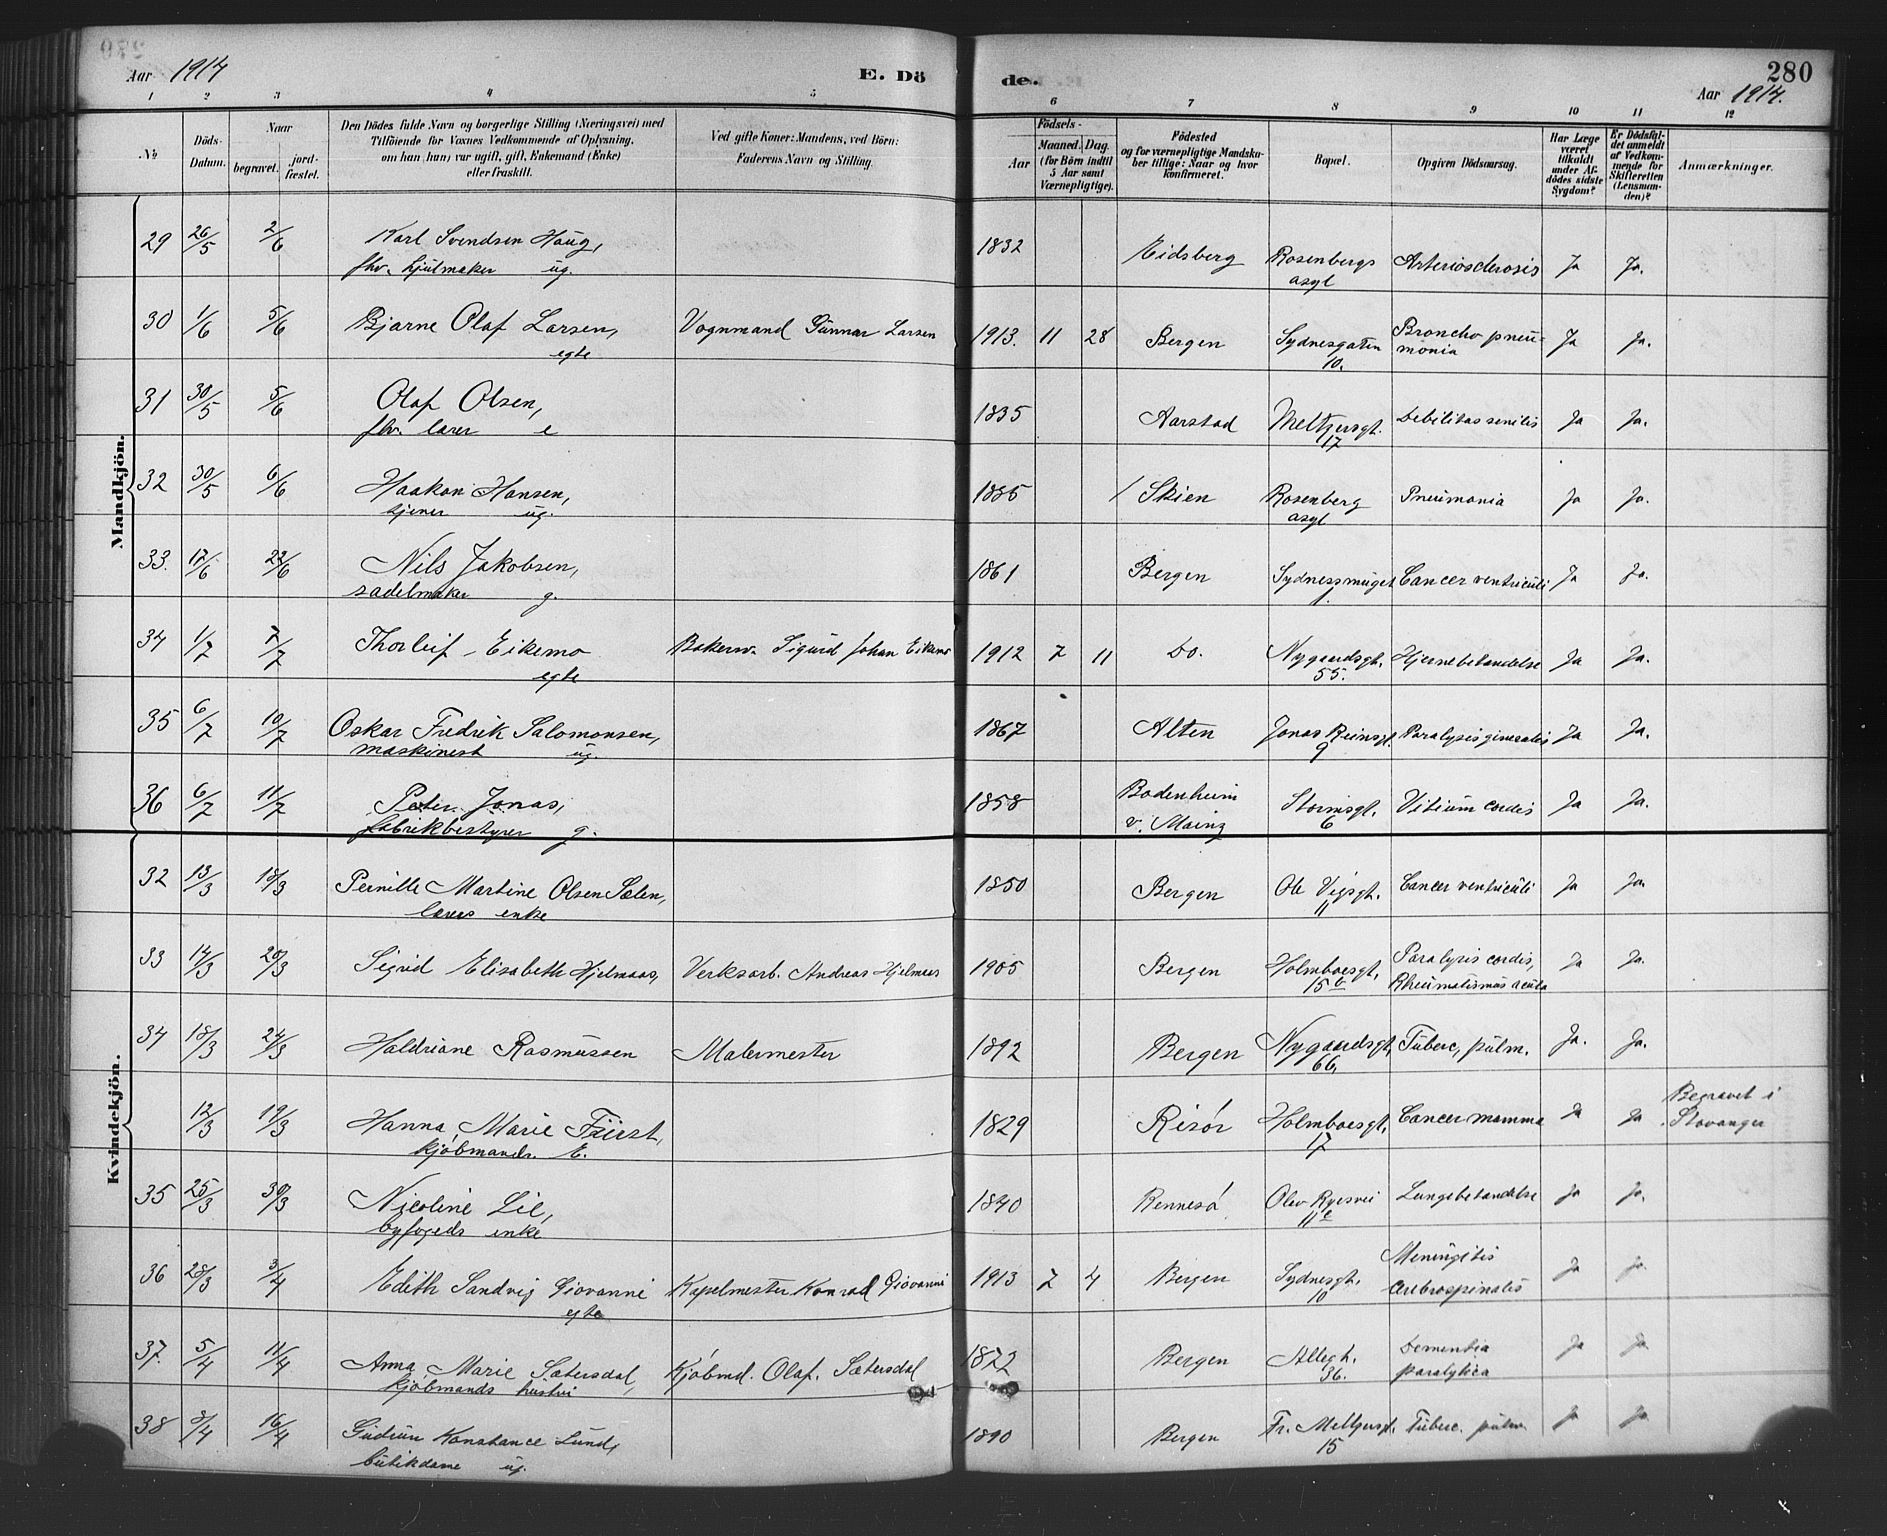 Aar 1914 E. Dö de. 280
Aar 1914.
1 2 3 4 5 6 7 8 9 10 11 12
No
Döds-Datum.
Naar
begravet.
jord-fæstet.
Den Dödes fulde Navn og borgerlige Stilling (Næringsvei) med
Tilföiende for Voxnes Vedkommende af Oplysning,
om han (hun) var ugift, gift, Enkemand (Enke)
eller fraskilt.
Ved gifte Koner: Mandens, ved Börn:
Faderens Navn og Stilling.
Födsels-
Aar
Maaned. Dag.
(for Börn indtil
5 Aar samt
Værnepligtige).
Födested
og for værnepligtige Mandska-
ber tillige: Naar og hvor
konfirmeret.
Bopæl.
Opgiven Dödsaarsag.
Har Læge
været
tilkaldt
under Af-
dödes sidste
Sygdom?
Er Dödsfal-
det anmeldt
af Vedkom-
mende for
Skifteretten
(Lensman-
den)?
Anmærkninger.
Mandkjön.
29 26/5 2/6 Karl Svendsen Haug, 1832 Eidsberg Rosenbergs Arteriosclerosis Ja Ja.
fhv. hjulmaker ug. asyl
30 1/6 5/6 Bjarne Olaf Larsen, Vognmand Gunnar Larsen 1913. 11 28 Bergen Sydnesgaten Broncho pneu- Ja Ja.
egte 10. monia
31 30/5 5/6 Olaf Olsen, 1835 Aarstad Meltzersgt. Debilitas senilis Ja Ja.
fhv. lærer e 17
32 30/5 6/6 Haakon Hansen, 1885 / Skien Rosenberg Pneumonia Ja Ja.
tjener ug. asyl
33. 17/6 22/6 Nils Jakobsen, 1861 Bergen Sydnessmuget Cancer ventriculi Ja Ja.
sadelmaker g. 1.
34 1/7 7/7 Thorleif Eikemo Bakersv. Sigurd Johan Eikemo 1912 7 11 Do. Nygaardsgt. Hjernebetændelse Ja Ja.
egte 55.
35 6/7 10/7 Oskar Fredrik Salomonsen, 1867 Alten Jonas Reinsgt. Paralysis generalis Ja Ja.
maskinist ug. 9
36 6/7 11/7 Peter Jonas, 1858 Bodenheim Stormsgt. Vitium cordis Ja Ja.
fabrikbestyrer g. v. Mainz 6
Kvindekjön.
32 13/3 18/3 Pernille Martine Olsen Sælen, 1850 Bergen Ole Vigsgt. Cancer ventriculi Ja Ja.
lærers enke 11
33 14/3 20/3 Sigrid Elisabeth Hjelmaas, Verksarb. Andreas Hjelmaas 1905 Bergen Holmboesgt. Paralysis cordis, Ja Ja.
15 b Rheumatismus acuta
34 18/3 24/3 Haldriane Rasmussen Malermester 1892 Bergen Nygaardsgt. Tuberc. pulm. Ja. Ja.
66.
12/3 19/3 Hanna Marie Fürst, 1829 Risør Holmboesgt. Cancer mamma Ja Ja Begravet i
kjøbmands E. 17 Stavanger
35 25/3 30/3 Nicoline Lie, 1840 Rennesø Olav Ryesvei Lungebetændelse Ja Ja.
byfogeds enke 11 c
36 28/3 3/4 Edith Sandvig Giovanni Kapelmester Konrad Giovanni 1913 7 4 Bergen Sydnesgt. Meningitis Ja Ja.
egte 10 cerebrospinalis
37. 5/4 11/4 Anna Marie Sætersdal, Kjøbmd. Olaf Sætersdal 1872 Bergen Allegt. Dementia Ja Ja.
kjøbmands hustru 36. paralytica
38 8/4 16/4 Gudrun Konstance Lund, 1890 Bergen Fr. Meltzersgt. Tuberc. pulm. Ja Ja.
butikdame ug. 15